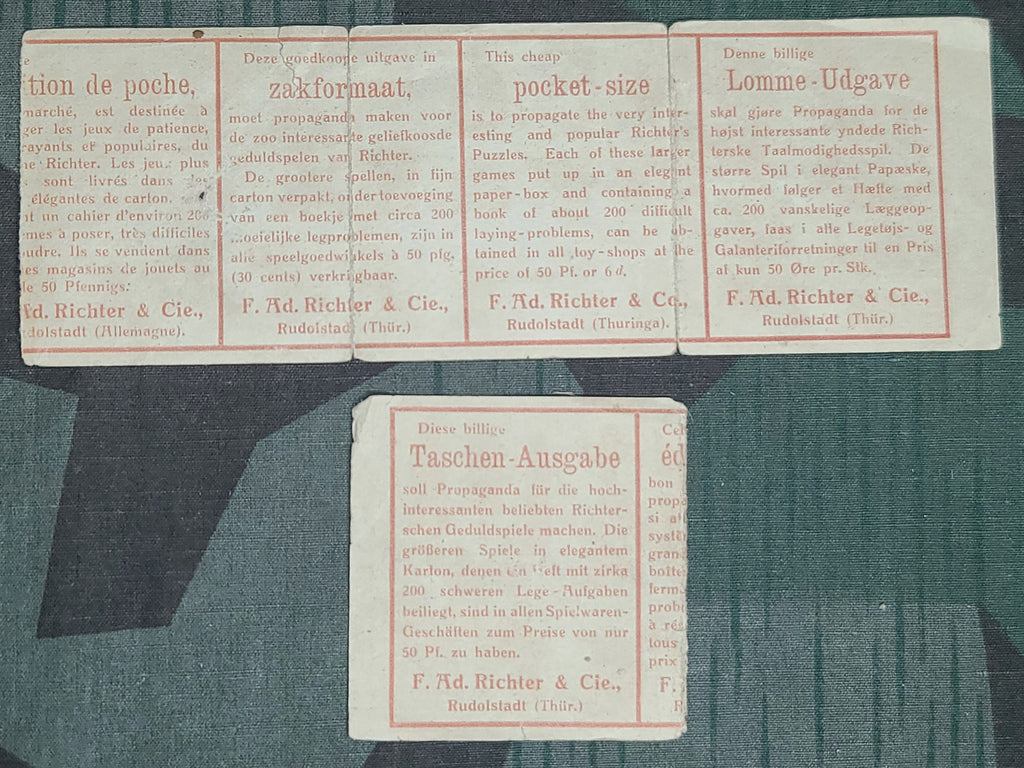 tion de poche,
marché, est destinée à
ger les jeux de patience,
rayants et populaires, du
Richter. Les jeux plus
sont livrés dans des
élégantes de carton.
un cahier d'environ 200
mes à poser, très difficiles
oudre. Ils se vendent dans
es magasins de jouets au
de 50 Pfennigs.
Ad. Richter & Cie.,
dolstadt (Allemagne).
Deze goedkoope uitgave in
zakformaat,
moet propaganda maken voor
de zoo interessante geliefkoosde
geduldspelen van Richter.
De grootere spellen, in fijn
carton verpakt, onder toevoeging
van een boekje met circa 200
...oeielijke legproblemen, zijn in
alle speelgoedwinkels à 50 pfg.
(30 cents) verkrijgbaar.
F. Ad. Richter & Cie.,
Rudolstadt (Thür.)
This cheap
pocket-size
is to propagate the very inter-
esting and popular Richter's
Puzzles. Each of these larger
games put up in an elegant
paper-box and containing a
book of about 200 difficult
laying-problems, can be ob-
tained in all toy-shops at the
price of 50 Pf. or 6 d.
F. Ad. Richter & Co.,
Rudolstadt (Thuringa).
Denne billige
Lomme-Udgave
skal gjøre Propaganda for de
højst interessante yndede Rich-
terske Taalmodighedsspil. De
større Spil i elegant Papæske,
hvormed følger et Hæfte med
ca. 200 vanskelige Læggeop-
gaver, faas i alle Legetøjs- og
Galanteriforretninger til en Pris
af kun 50 Øre pr. Stk.
F. Ad. Richter & Cie.,
Rudolstadt (Thür.)
Diese billige
Taschen-Ausgabe
soll Propaganda für die hoch-
interessanten beliebten Richter-
schen Geduldspiele machen. Die
größeren Spiele in elegantem
Karton, denen ein Heft mit zirka
200 schweren Lege-Aufgaben
beiliegt, sind in allen Spielwaren-
Geschäften zum Preise von nur
50 Pf. zu haben.
F. Ad. Richter & Cie.,
Rudolstadt (Thür.)
Cet
éd
bon
propa
si at
systè
gran
boîte
ferm
prob
à rés
tous
prix
F.
R